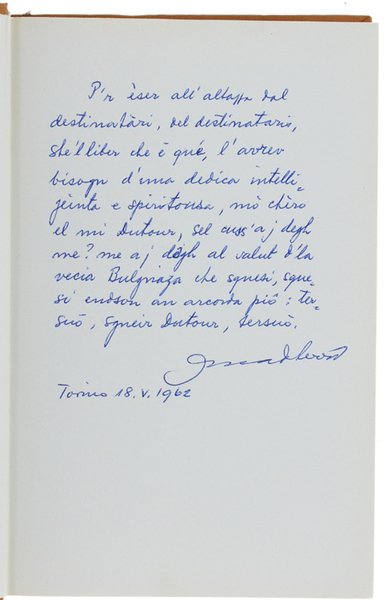 P'r èser all'altozza dal
destinatàri, del destinatario,
ste'l liber che è qué, l'avrev
bisogn d'una dedica intelli-
zeinta e spiritousa, mò chèro
el mi Dutour, sel cuss'a j degh
me? me a j dégh al valut d'la
vecia Bulgnaza che squesi, sque-
si endson an arcorda piô: ter-
suō, sgneir Dutour, tersuō.
Torino 18.V.1962